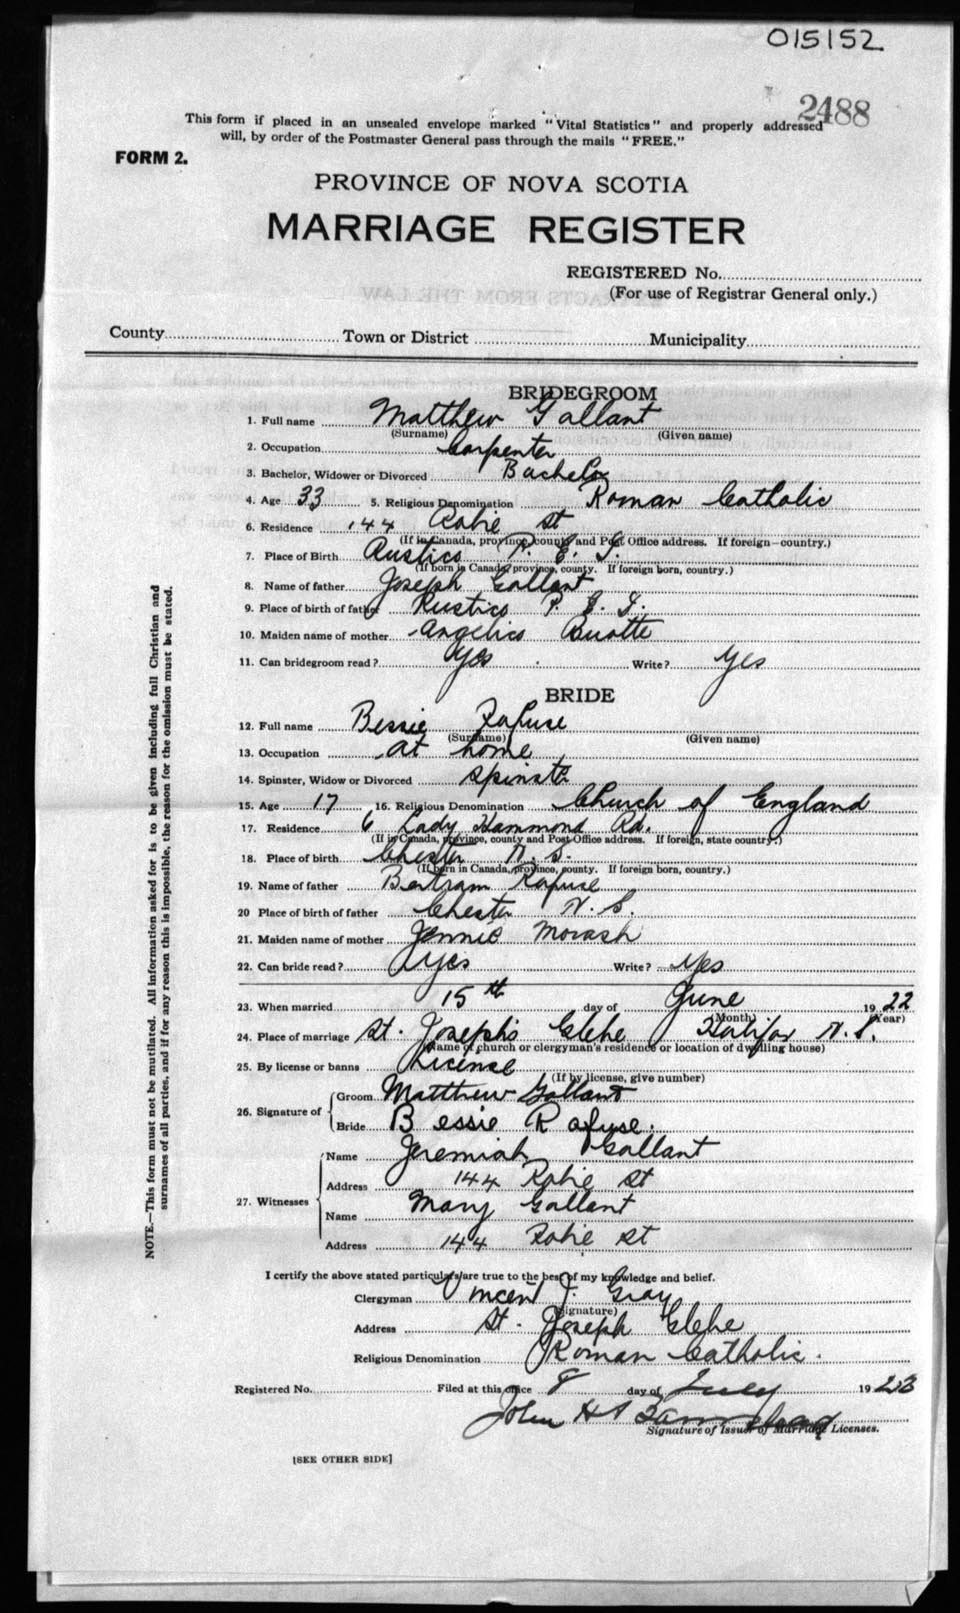 015152
2488
This form if placed in an unsealed envelope marked "Vital Statistics" and properly addressed
will, by order of the Postmaster General pass through the mails "FREE."
FORM 2.
PROVINCE OF NOVA SCOTIA
MARRIAGE REGISTER
REGISTERED No.
(For use of Registrar General only.)
County Town or District Municipality
BRIDEGROOM
1. Full name Matthew Gallant
(Surname) (Given name)
2. Occupation Carpenter
3. Bachelor, Widower or Divorced Bachelor
4. Age 33 5. Religious Denomination Roman Catholic
6. Residence 144 Robie St
(If in Canada, province, county and Post Office address. If foreign—country.)
7. Place of Birth Rustico P. E. I.
(If born in Canada, province, county. If foreign born, country.)
8. Name of father Joseph Gallant
9. Place of birth of father Rustico P. E. I.
10. Maiden name of mother Angelico Buotte
11. Can bridegroom read? Yes Write? Yes
BRIDE
12. Full name Bessie Rafuse
(Surname) (Given name)
13. Occupation at home
14. Spinster, Widow or Divorced Spinster
15. Age 17 16. Religious Denomination Church of England
17. Residence 6 Lady Hammond Rd.
(If in Canada, province, county and Post Office address. If foreign, state country.)
18. Place of birth Chester N. S.
(If born in Canada, province, county. If foreign born, country.)
19. Name of father Bertram Rafuse
20 Place of birth of father Chester N. S.
21. Maiden name of mother Jennie Morash
22. Can bride read? Yes Write? Yes
23. When married 15th day of June 1922
(Month) (Year)
24. Place of marriage St. Joseph's Glebe Halifax N. S.
(Name of church or clergyman's residence or location of dwelling house)
25. By license or banns License
(If by license, give number)
26. Signature of Groom Matthew Gallant
Bride Bessie Rafuse.
27. Witnesses Name Jeremiah Gallant
Address 144 Robie St
Name Mary Gallant
Address 144 Robie St
I certify the above stated particulars are true to the best of my knowledge and belief.
Clergyman Vincent J. Gray
(Signature)
Address St. Joseph Glebe
Religious Denomination Roman Catholic.
Registered No. Filed at this office 8 day of July 1923
John H
Signature of Issuer of Marriage Licenses.
[SEE OTHER SIDE]
NOTE.—This form must not be mutilated. All information asked for is to be given including full Christian and
surnames of all parties, and if for any reason this is impossible, the reason for the omission must be stated.